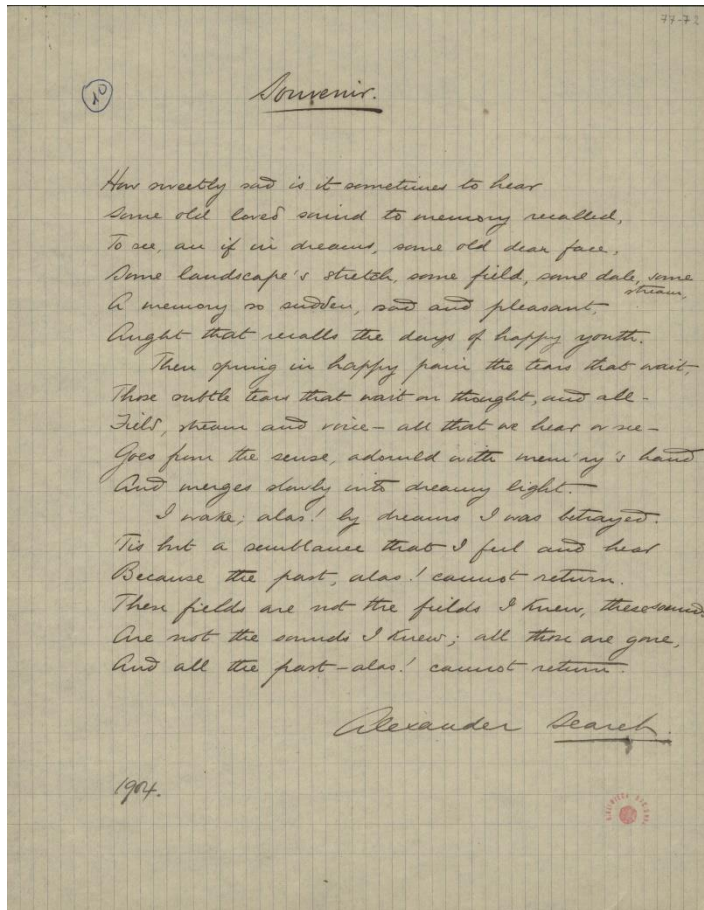 77-72
10
Souvenir.
How sweetly sad is it sometimes to hear
Some old loved sound to memory recalled,
To see, as if in dreams, some old dear face,
Some landscape's stretch, some field, some dale, some
stream,
A memory so sudden, sad and pleasant,
Aught that recalls the days of happy youth.
Then spring in happy pain the tears that wait,
Those subtle tears that wait on thought, and all -
Field, stream and voice - all that we hear or see -
Goes from the sense, adorned with mem'ry's hand
And merges slowly into dreamy light.
I wake; alas! by dreams I was betrayed.
Tis but a semblance that I feel and hear
Because the past, alas! cannot return.
These fields are not the fields I knew, these sounds
Are not the sounds I knew; all those are gone,
And all the past - alas! cannot return.
Alexander Search.
1904.
BIBLIOTECA NACIONAL